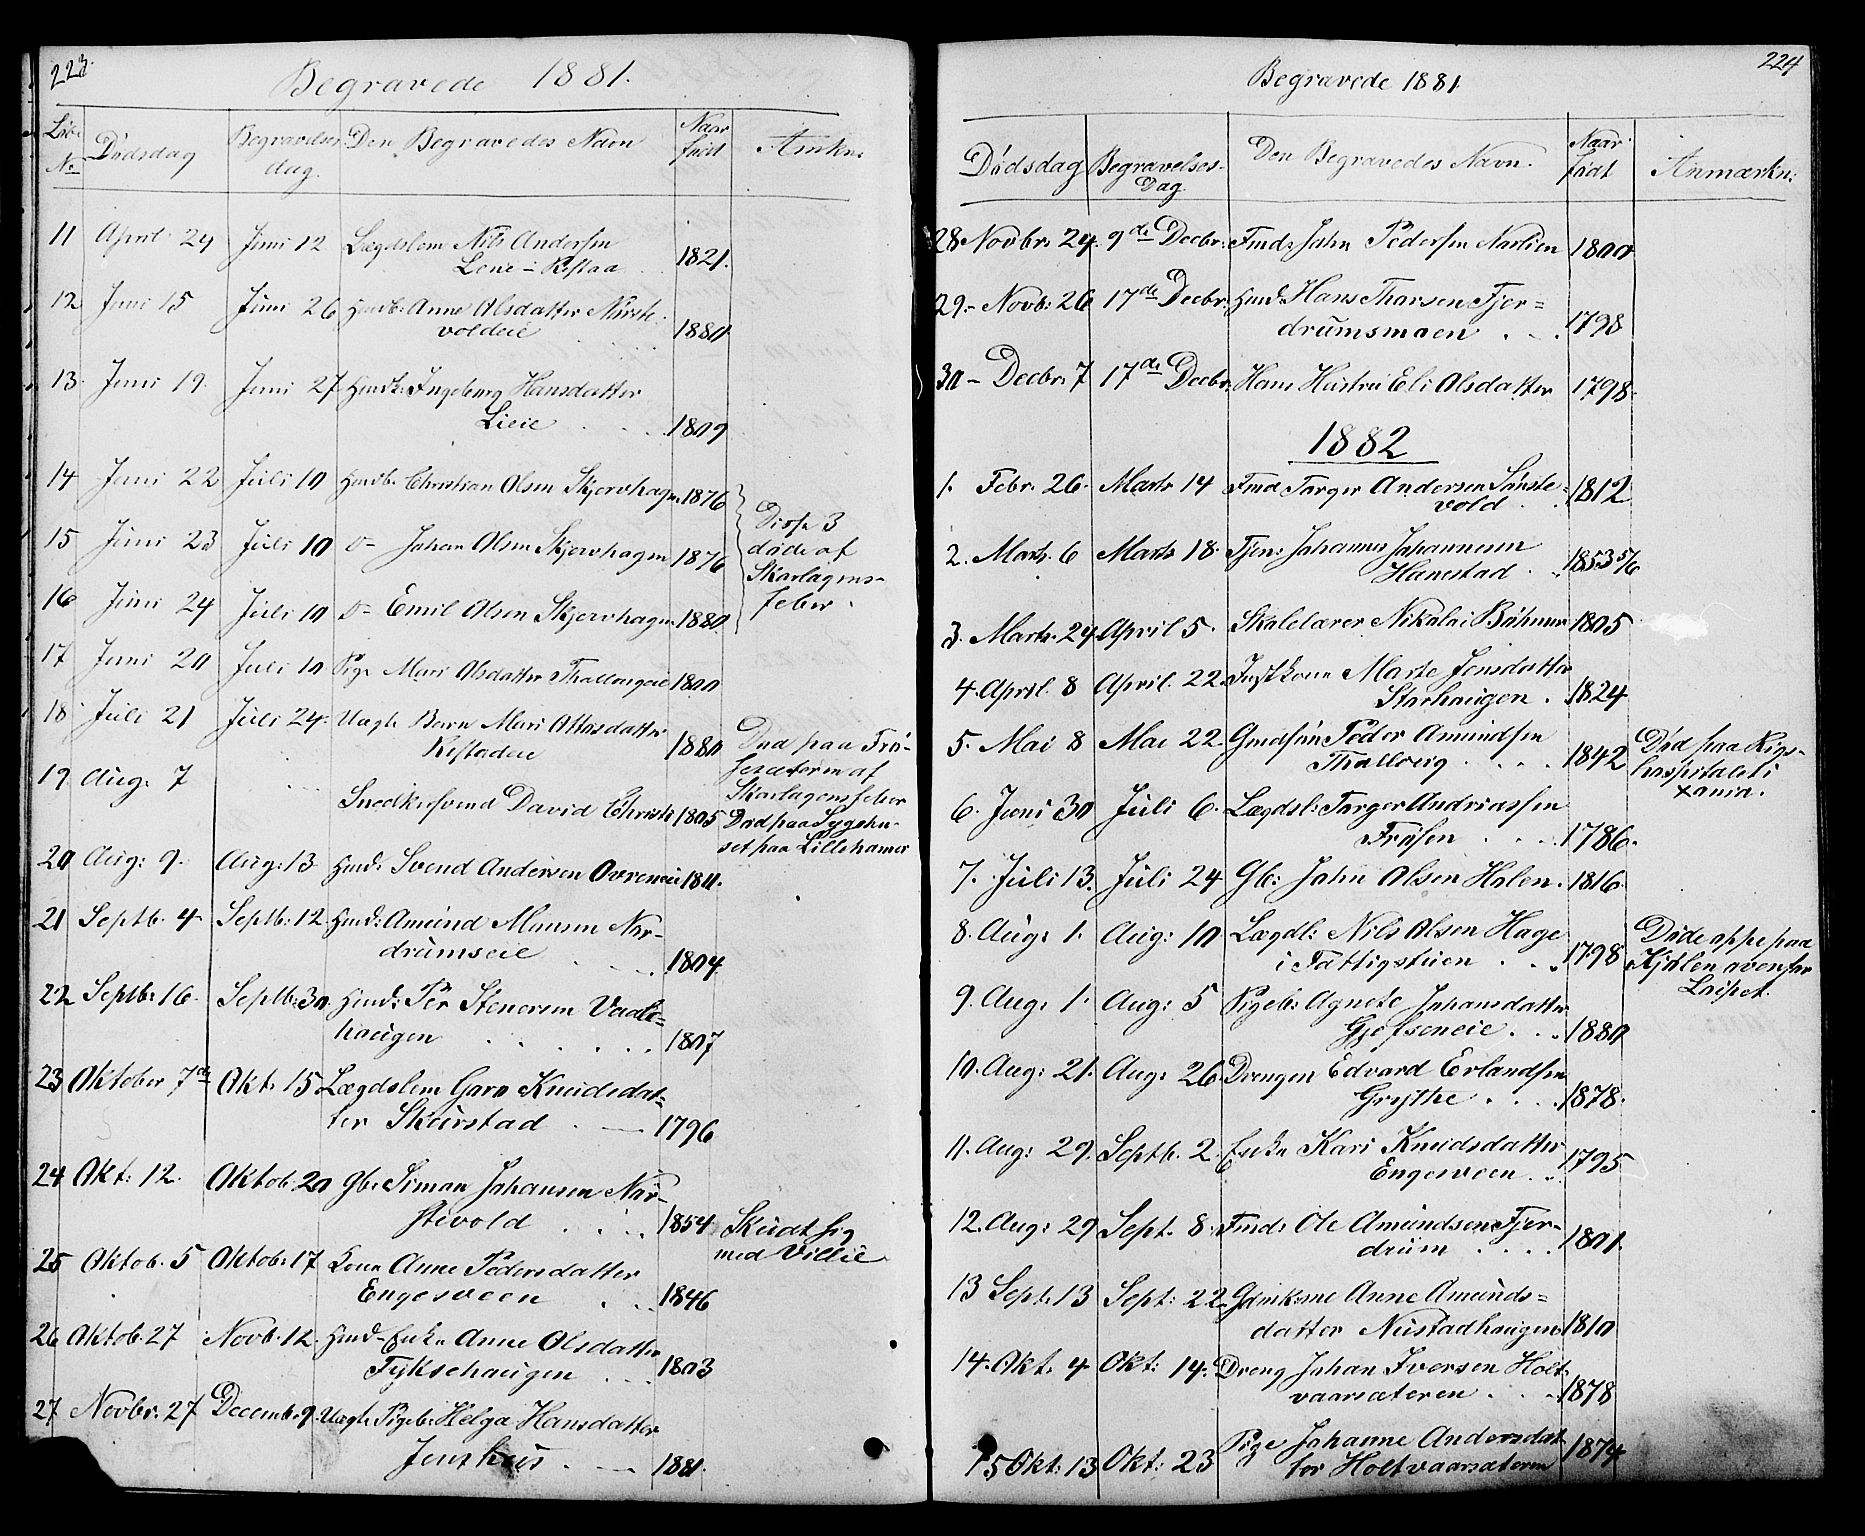 223.
Begravede 1881.
Løb. No
Dødsdag
Begravelses dag.
Den Begravedes Navn
Naar født
Anmkn.
11 April 24 Juni 12 Lægdslem Nils Andersen
1821.
12 Juni 15 Juni 26 Anne Olsdatter
voldeie 1880
13. Juni 19. Juni 27 Ingeborg Hansdatter
Lieie 1809
14 Juni 22 Juli 10 Christian Olsen Skjervhagen 1876
15 Juni 23 Juli 10 D= Johan Olsen Skjervhagen 1876
Disse 3
døde af
Skarlagens-
feber.
16 Juni 24 Juli 10 D= Emil Olsen Skjervhagen 1880
17 Juni 20 Juli 10 Pige Mari Olsdatter 1800
18 Juli 21 Juli 24. Uægte Barn Mari Ottosdatter
1880
Død paa Frø-
sesæteren af
Skarlagensfeber
19 Aug: 7
Snedkersvend David Christi 1805
Død paa Sygehu-
set paa Lillehamer
20 Aug: 9. Aug: 13 Svend Andersen 1811.
21 Septb. 4 Septb: 12 Amund Monsen Nor-
drumseie 1804
22 Septb: 16. Septb: 30 Per Stenersen
haugen 1807
23 Oktober 7de Okt. 15 Lægdslem Guro Knudsdat=
ter Skurstad 1796
24 Okt: 12. Oktob. 20 Gb: Simon Johansen Nor-
stevold 1854
Skudt sig
med Villie
25 Oktob. 5 Oktob: 17 Kone Anne Pedersdatter
Engesveen 1846
26 Oktob. 27 Novb. 12 Enke Anne Olsdatter
Fykschaugen 1803
27 Novbr: 27 Decemb. 9. Uægte Pigeb: Helga Hansdatter
Jenshus 1881.
224
Begravede 1881.
Dødsdag
Begravelses-Dag.
Den Begravedes Navn.
Naar født
Anmærkn:
28 Novbr. 24. 9de Decbr: Fmd: John Pedersen Nordlien 1800
29.- Novb: 26 17de Decbr. Hans Tharsen Fjer=
drumsmoen 1798
30 - Decbr: 7 17de Decbr. Hans Hustru Eli Olsdatter 1798.
1882
1. Febr. 26. Marts 14 Fmd Torger Andersen
vold 1812
2. Marts. 6 Marts 18. Tjen: Johannes Johannesen
Hanestad 1853 5/6
3. Marts. 24 April 5. Skolelærer Nikolai Böhmer 1805
4. April. 8 April. 22. Marte Jonsdatter
Storhaugen. 1824
5. Mai 8 Mai 22. Peder Amundsen
Thallerig 1842
Død paa Rigs-
hospitalet i
Xania.
6. Juni 30 Juli 6. Lægdsl: Torger Andriassen
Frøsen 1786.
7. Juli 13. Juli 24 Gb: John Olsen Holen. 1816
8. Aug: 1. Aug: 10 Lægdl: Nils Olsen Hage
i Fattigstuen 1798
Døde oppe paa
Kjølen ovenfor
Laupet.
9. Aug: 1. Aug: 5 Pigeb: Agnete Johansdatter
Gjefseneie 1880
10. Aug: 21. Aug: 26. Drengen Edvard Erlandsen
Grythe 1878.
11. Aug: 29. Septb. 2. Enke Kari Knudsdatter
Engesveen 1795
12. Aug: 29 Sept. 8. Fmd: Ole Amundsen Fjer-
drum 1801.
13 Sept. 13 Sept: 22. Anne Amunds=
datter Nustadhaugen 1810
14. Okt. 4 Okt: 14. Dreng Johan Iversen Holt-
vaarsæteren 1878
15 Okt: 13 Okt: 23 Pige Johanne Andersdat-
ter Holtvaarsæteren 1874